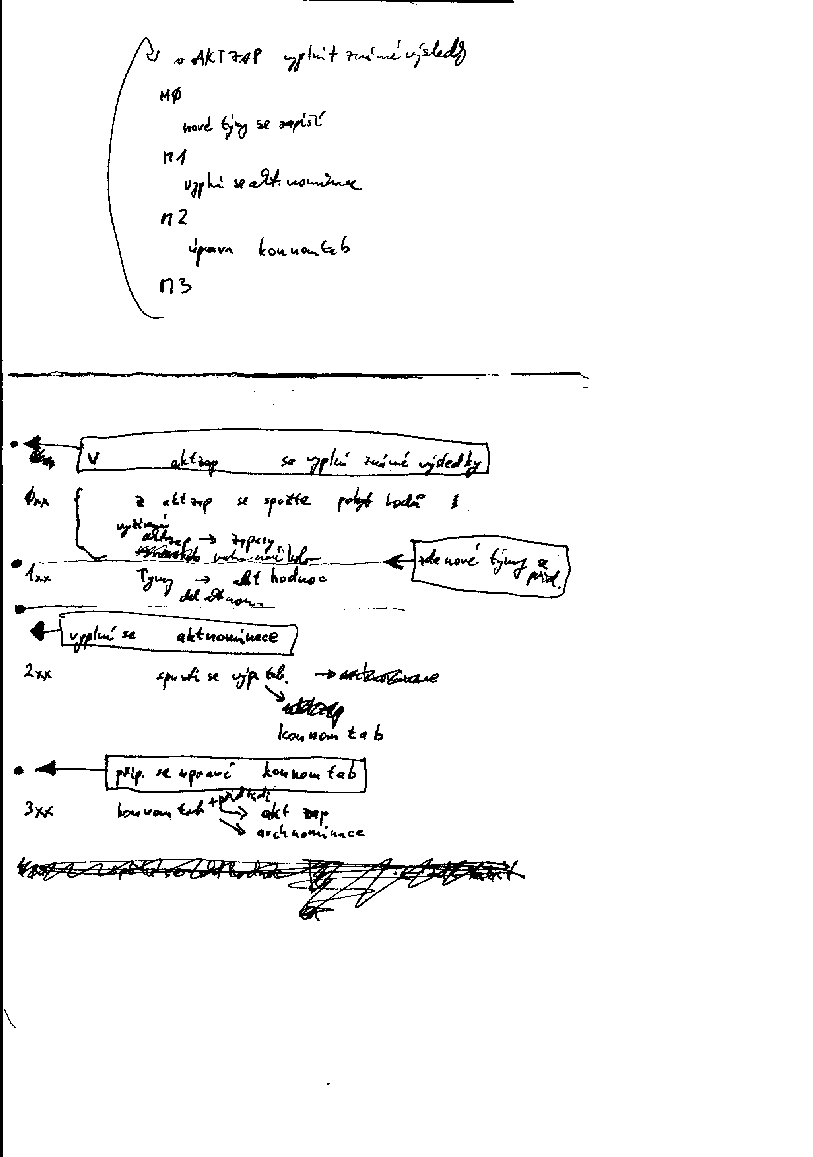 v AKTZAP vyplnit známé výsledky
M0
nové týmy se zapíší
M1
vyplní se akt. nominace
M2
úprava konnomtab
M3
V aktzap se vyplní známé výsledky
0xx
z aktzap se spočte počet bodů
aktzap → zápasy
zde nové týmy se přid.
1xx
Týmy → akt hodnoc
vyplní se aktnominace
2xx
spustí se výp. tab. →
konnomtab
příp. se upraví konnomtab
3xx
konnomtab → akt zap
→ archnominace